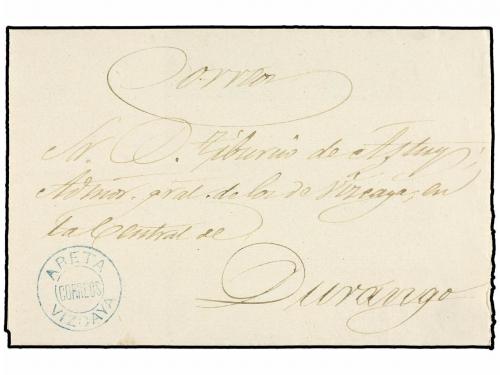 Correo
Sr. D. Tiburcio de Astuy,
Admor. gral. de los de Vizcaya, en
la Central de
Durango
ARETA
CORREOS
VIZCAYA